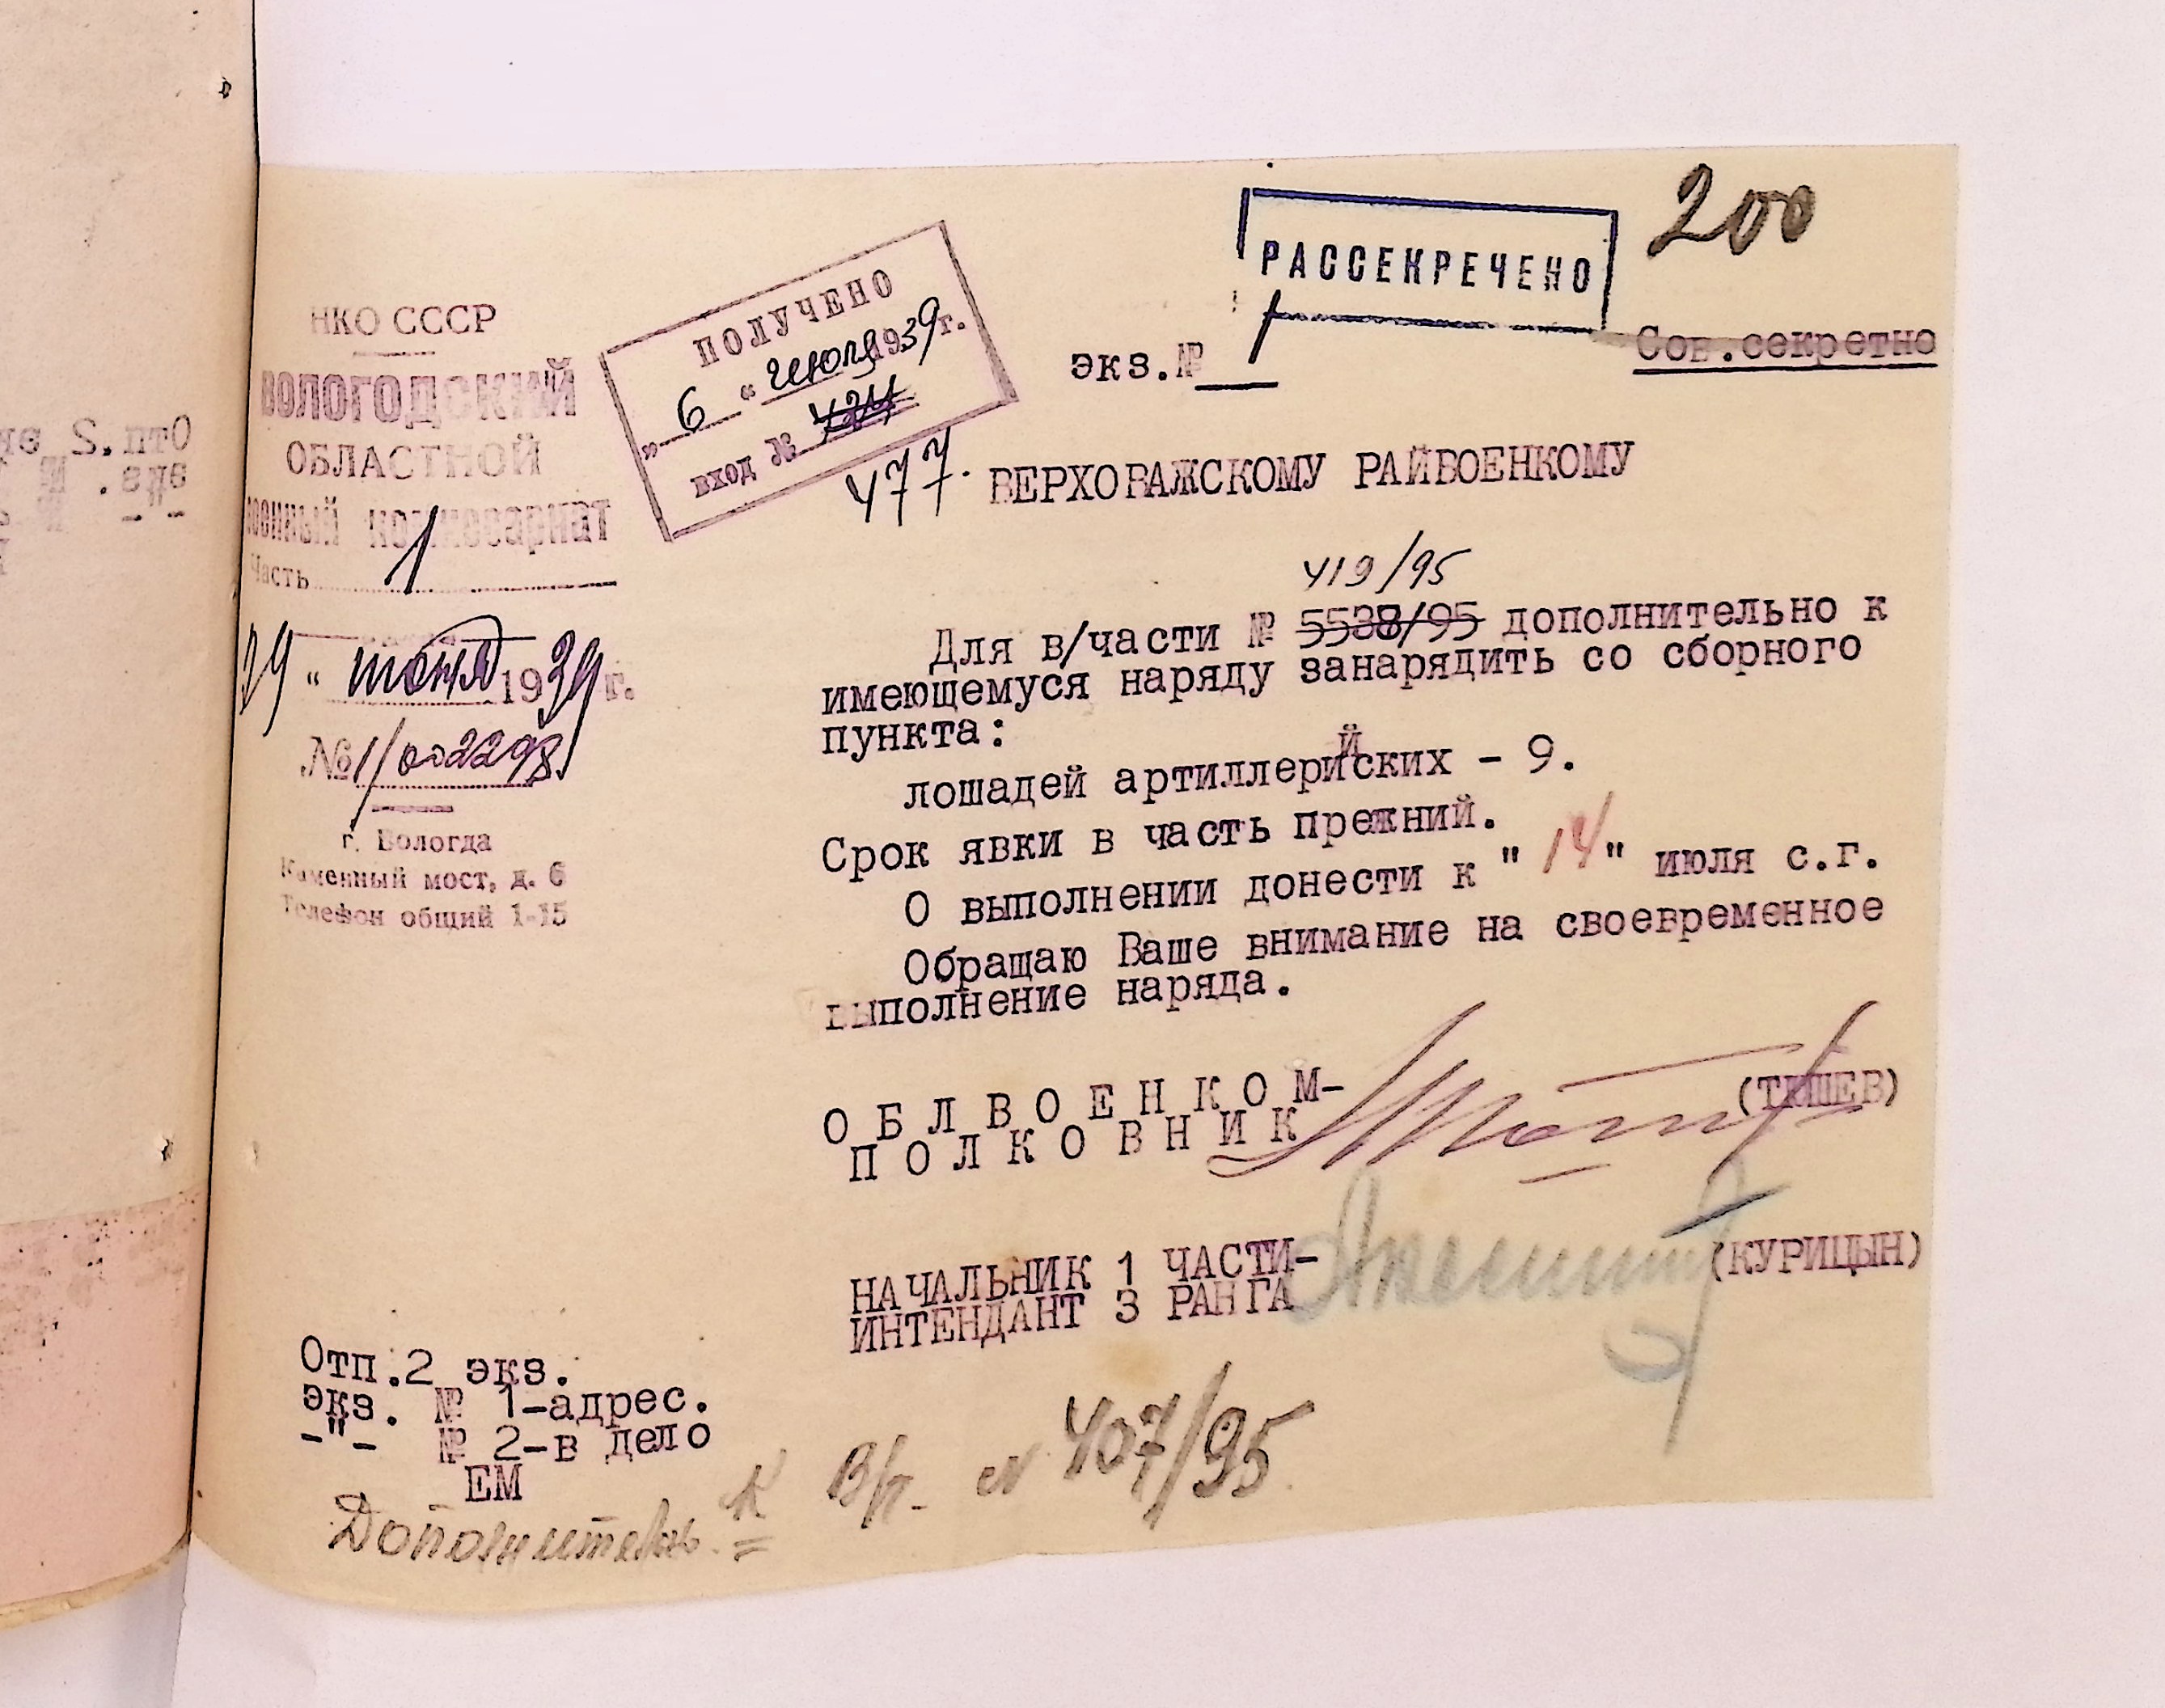 200
РАССЕКРЕЧЕНО
Сов.секретно
экз.№ 1
НКО СССР
ВОЛОГОДСКИЙ
ОБЛАСТНОЙ
военный комиссариат
Часть 1
29 " июня 1939 г.
№ 1/002298
г. Вологда
Каменный мост, д. 6
Телефон общий 1-15
ПОЛУЧЕНО
" 6 " июля 1939 г.
вход №
477.
ВЕРХОВАЖСКОМУ РАЙВОЕНКОМУ
419/95
Для в/части № 5538/95 дополнительно к
имеющемуся наряду занарядить со сборного
пункта:
лошадей артиллерийских - 9.
Срок явки в часть прежний.
О выполнении донести к " 14 " июля с.г.
Обращаю Ваше внимание на своевременное
выполнение наряда.
ОБЛВОЕНКОМ-
ПОЛКОВНИК
(ТЮШЕВ)
НАЧАЛЬНИК 1 ЧАСТИ-
ИНТЕНДАНТ 3 РАНГА
(КУРИЦЫН)
Отп.2 экз.
экз. № 1-адрес.
-"- № 2-в дело
ЕМ
Дополнительн. к В/ч. № 407/95
Отп.2 эк
экз. №
-"- №